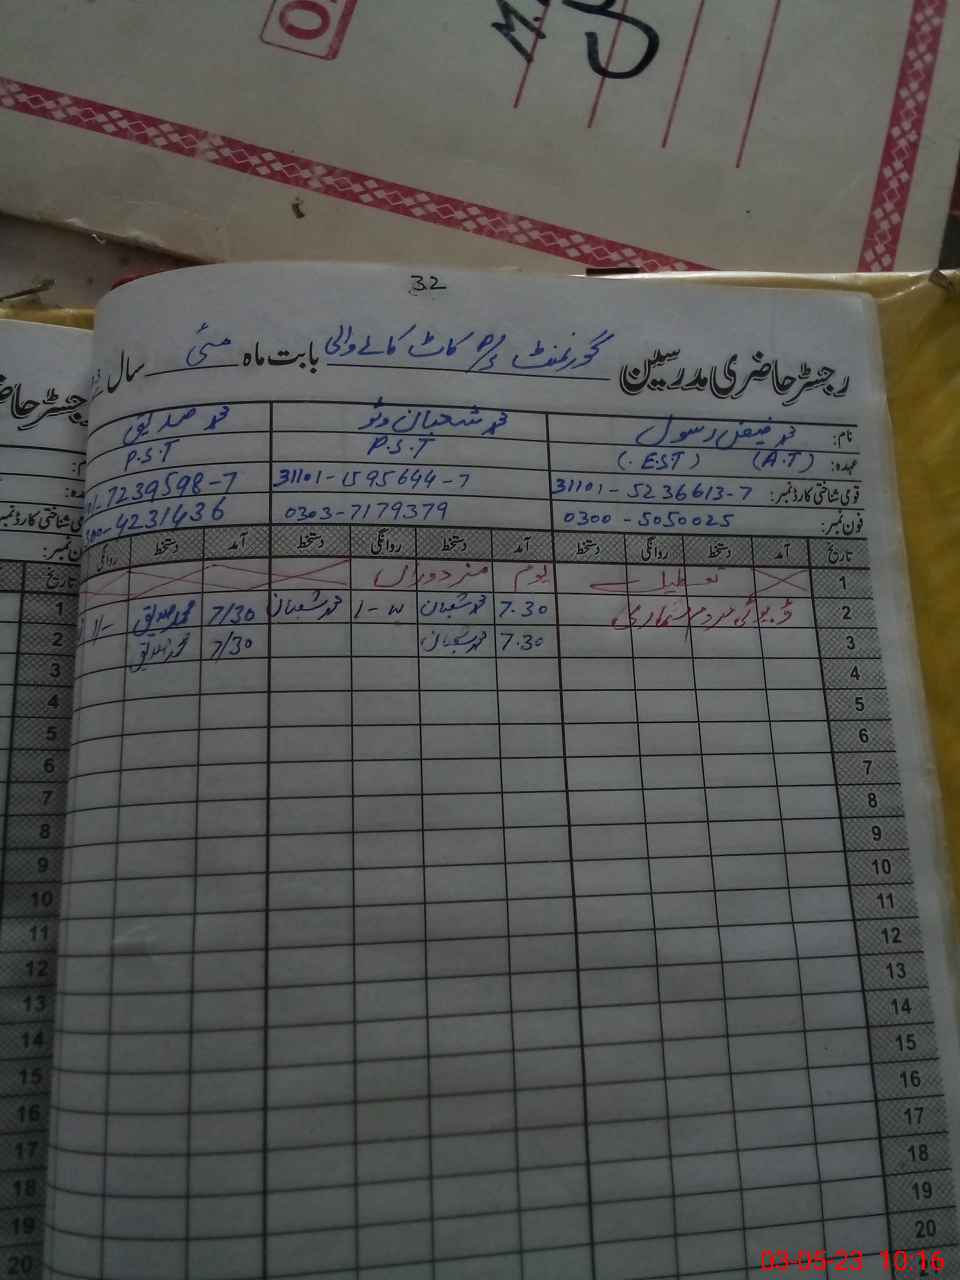 M.
32
رجسٹر حاضری مدرسین گورنمنٹ P/S کاٹ کالے والی بابت ماہ مئی سال
نام: محمد فیض رسول محمد شعبان وٹو محمد صدیق
عہدہ: (A.T) (EST) P.S.T P.S.T
قومی شناختی کارڈ نمبر: 31101-5236613-7 31101-1595644-7 7239598-7
فون نمبر: 0300-5050025 0303-7179379 4231436
تاریخ آمد دستخط روانگی دستخط آمد دستخط روانگی دستخط آمد دستخط روانگی
1 تعطیل یوم مزدوراں
2 ڈیوٹی مردم شماری 7.30 محمد شعبان محمد شعبان 7/30 محمد صدیق
3 7.30 محمد شعبان 7/30 محمد صدیق
4
5
6
7
8
9
10
11
12
13
14
15
16
17
18
19
20
رجسٹر حا
تاریخ
1
2
3
4
5
6
7
8
9
10
11
12
13
14
15
16
17
18
19
20
03-05-23 10:16